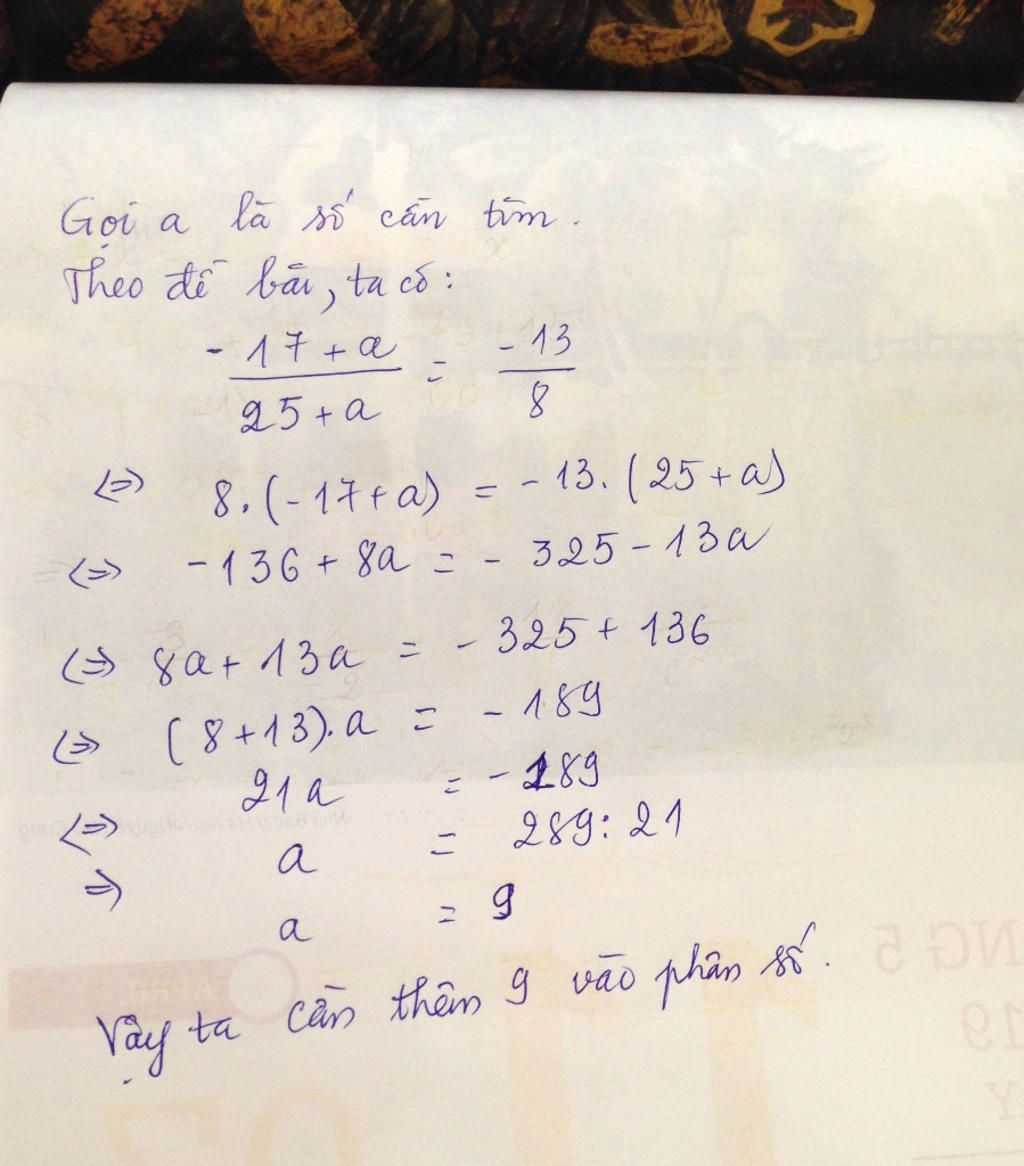 Gọi a là số cần tìm.
Theo đề bài, ta có:
-17+a / 25+a = -13 / 8
<=> 8.(-17+a) = -13.(25+a)
<=> -136+8a = -325-13a
<=> 8a+13a = -325+136
<=> (8+13).a = -189
<=> 21a = -189
=> a = 289:21
a = 9
Vậy ta cần thêm 9 vào phân số.
NG 5
19